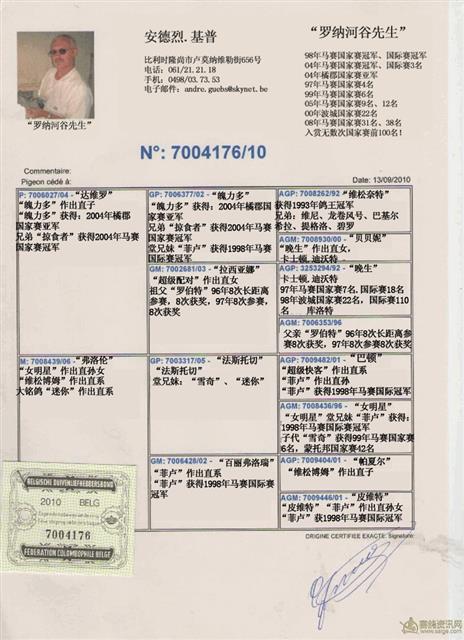 安德烈.基普
比利时隆尚市卢莫纳维勒街656号
电话：061/21.21.18
手机：0498/03.73.53
电子邮件：andre.guebs@skynet.be
“罗纳河谷先生”
98年马赛国家赛冠军、国际赛冠军
04年马赛国家赛冠军、国际赛3名
04年橘郡国家赛亚军
97年马赛国家赛4名
99年马赛国家赛6名
05年马赛国家赛9名、12名
00年波城国家赛22名
08年马赛国家赛31名、38名
入赏无数次国家赛前100名！
“罗纳河谷先生”
N°: 7004176/10
Commentaire:
Pigeon cédé à:
Date: 13/09/2010
P: 7006027/04 - “达维罗”
“魄力多”作出直子
“魄力多”获得：2004年橘郡
国家赛亚军
兄弟“掠食者”获得2004年马赛
国家赛冠军
M: 7008439/06 - “弗洛伦”
“女明星”作出直孙女
“维松博姆”作出直系
大铭鸽“迷你”作出直系
GP: 7006377/02 - “魄力多”
“魄力多”获得：2004年橘郡
国家赛亚军
兄弟“掠食者”获得2004年马赛
国家赛冠军
堂兄弟“菲卢”获得1998年马赛
国际赛冠军
GM: 7002681/03 - “拉西亚娜”
“超级配对”作出直女
祖父“罗伯特”96年8次长距离
参赛，8次获奖，97年8次参赛，
8次获奖
GP: 7003317/05 - “法斯托切”
“法斯托切”
堂兄妹：“雪奇”、“迷你”
GM: 7006428/02 - “百丽弗洛瑞”
“菲卢”作出直系
“菲卢”获得1998年马赛国际赛
冠军
AGP: 7008262/92 “维松奈特”
获得1993年鸽王冠军
兄弟：维尼、龙卷风号、巴基尔
希拉、提格洛、碧罗
AGM: 7008930/00 - “贝贝妮”
“晚生”作出直女，
卡士顿.迪沃特
AGP: 3253294/92 - “晚生”
卡士顿.迪沃特
97年马赛国家赛7名，国际赛18名
98年波城国家赛22名，国际赛110
名 库洛特
AGM: 7006353/96
父亲“罗伯特”96年8次长距离参
赛8次获奖，97年8次参赛8次获奖
AGP: 7009482/01 - “巴顿”
“超级快客”作出直系
“菲卢”作出直孙
“菲卢”获得1998年马赛国际冠军
AGM: 7008436/96 - “女明星”
“女明星”堂兄妹“菲卢”获得：
1998年马赛国际赛冠军
子代“雪奇”获得99年马赛国家赛
6名，蒙托邦国家赛42名
AGP: 7009404/01 - “帕夏尔”
“维松博姆”作出直子
AGM: 7009446/01 - “皮维特”
“皮维特”“菲卢”作出直孙女
“菲卢”获1998年马赛国际冠军
BELGISCHE DUIVENLIEFHEBBERSBOND
2010 BELG
7004176
FEDERATION COLOMBOPHILE BELGE
ORIGINE CERTIFIEE EXACTE. Signature:
赛鸽资讯网
www.saige.com